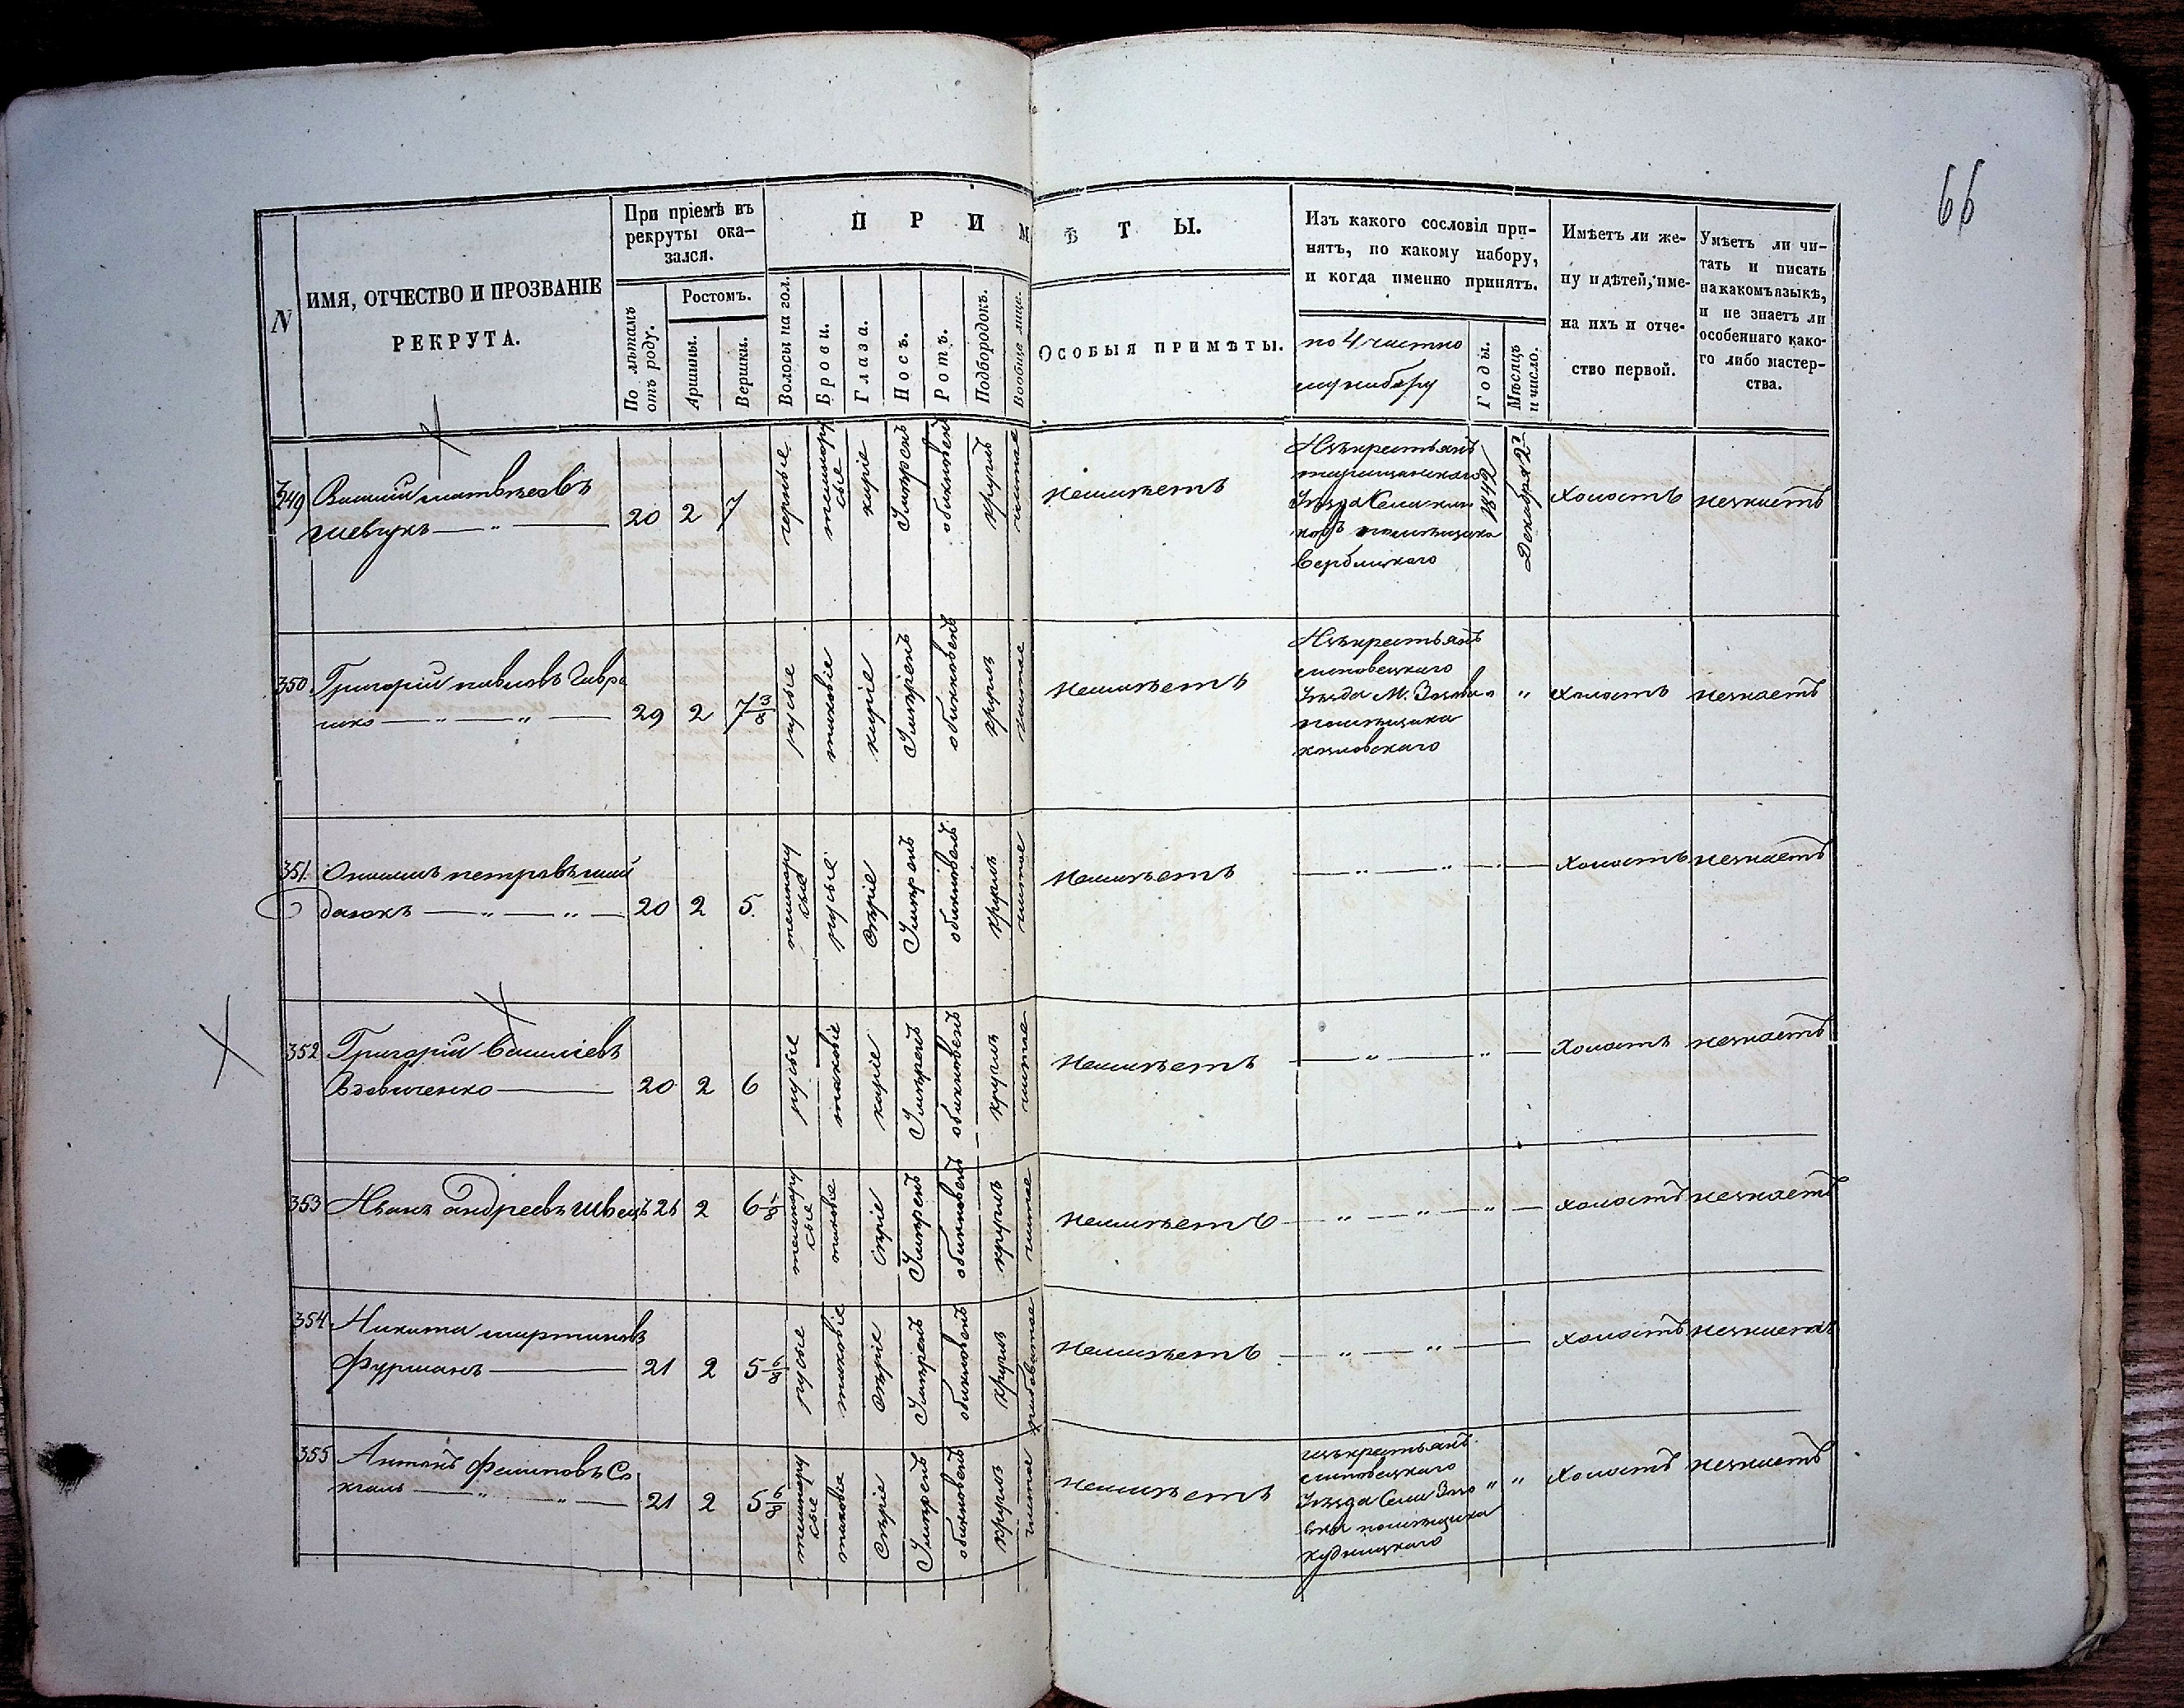 66
N
ИМЯ, ОТЧЕСТВО И ПРОЗВАНІЕ
РЕКРУТА.
При пріемѣ въ
рекруты ока-
зался.
По лѣтамъ
отъ роду.
Ростомъ.
Аршины.
Вершки.
ПРИМѢТЫ.
Волосы на гол.
Брови.
Глаза.
Носъ.
Ротъ.
Подбородокъ.
Вообще лице.
ОСОБЫЯ ПРИМѢТЫ.
Изъ какого сословія при-
нятъ, по какому набору,
и когда именно принятъ.
по 4 частно
му набору
Годы.
Мѣсяцъ
и число.
Имѣетъ ли же-
ну и дѣтей, име-
на ихъ и отче-
ство первой.
Умѣетъ ли чи-
тать и писать
на какомъ языкѣ,
и не знаетъ ли
особеннаго како-
го либо мастер-
ства.
349 Василій матвѣевъ
шевчукъ — " — 20 2 7
черные
темнору
сые
каріе
Умѣренъ
обыкновенъ
круглъ
чистое
неимѣетъ
Изъ крестьянъ
Уѣзда
помѣщика
1842
Декабря 2
холостъ
незнаетъ
350 Григорій павловъ Гавра
29 2 7 3/8
русые
таковіе
каріе
Умѣренъ
обыкновенъ
круглъ
чистое
неимѣетъ
Изъ крестьянъ
липовецкаго
Уѣзда М.
помѣщика
козловскаго
" "
холостъ
незнаетъ
351 петровъ
20 2 5.
темнору
сые
русые
сѣріе
Умѣренъ
обыкновенъ
круглъ
чистое
неимѣетъ
— " — " —
холостъ
незнаетъ
352 Григорій василіевъ
Вдовиченко — 20 2 6
русые
таковіе
каріе
Умѣренъ
обыкновенъ
круглъ
чистое
неимѣетъ
— " — " —
холостъ
незнаетъ
353 Иванъ андреевъ швецъ 21 2 6
темнору
сые
таковіе
сѣріе
Умѣренъ
обыкновенъ
круглъ
чистое
неимѣетъ
— " — " — " —
холостъ
незнаетъ
354 Никита мартиновъ
Фурманъ — 21 2 5 6/8
русые
таковіе
сѣріе
Умѣренъ
обыкновенъ
круглъ
неимѣетъ
— " — " —
холостъ
незнаетъ
355 Антонъ филиповъ Со
21 2 5 6/8
темнору
сые
таковіе
сѣріе
Умѣренъ
обыкновенъ
круглъ
чистое
неимѣетъ
изъ крестьянъ
липовецкаго
Уѣзда
помѣщика
" "
холостъ
незнаетъ